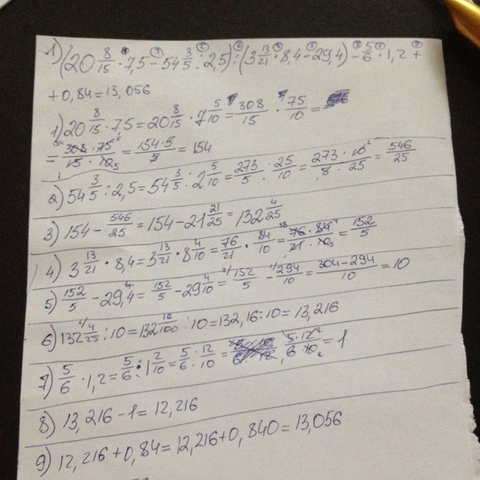 1) (20 8/15 · 7,5 - 54 3/5 : 2,5) : (3 13/21 · 8,4 - 29,4) - 5/6 · 1,2 +
+ 0,84 = 13,056
1) 20 8/15 · 7,5 = 20 8/15 · 7 5/10 = 308/15 · 75/10 =
= 308·75/15·10 = 154·5/5 = 154
2) 54 3/5 : 2,5 = 54 3/5 : 2 5/10 = 273/5 : 25/10 = 273·10/5·25 = 546/25
3) 154 - 546/25 = 154 - 21 21/25 = 132 4/25
4) 3 13/21 · 8,4 = 3 13/21 · 8 4/10 = 76/21 · 84/10 = 76·84/21·10 = 152/5
5) 152/5 - 29,4 = 152/5 - 29 4/10 = 152/5 - 294/10 = 304-294/10 = 10
6) 132 4/25 : 10 = 132 16/100 : 10 = 132,16 : 10 = 13,216
7) 5/6 · 1,2 = 5/6 · 1 2/10 = 5·12/6·10 = 5·12/6·10 = 1
8) 13,216 - 1 = 12,216
9) 12,216 + 0,84 = 12,216 + 0,840 = 13,056